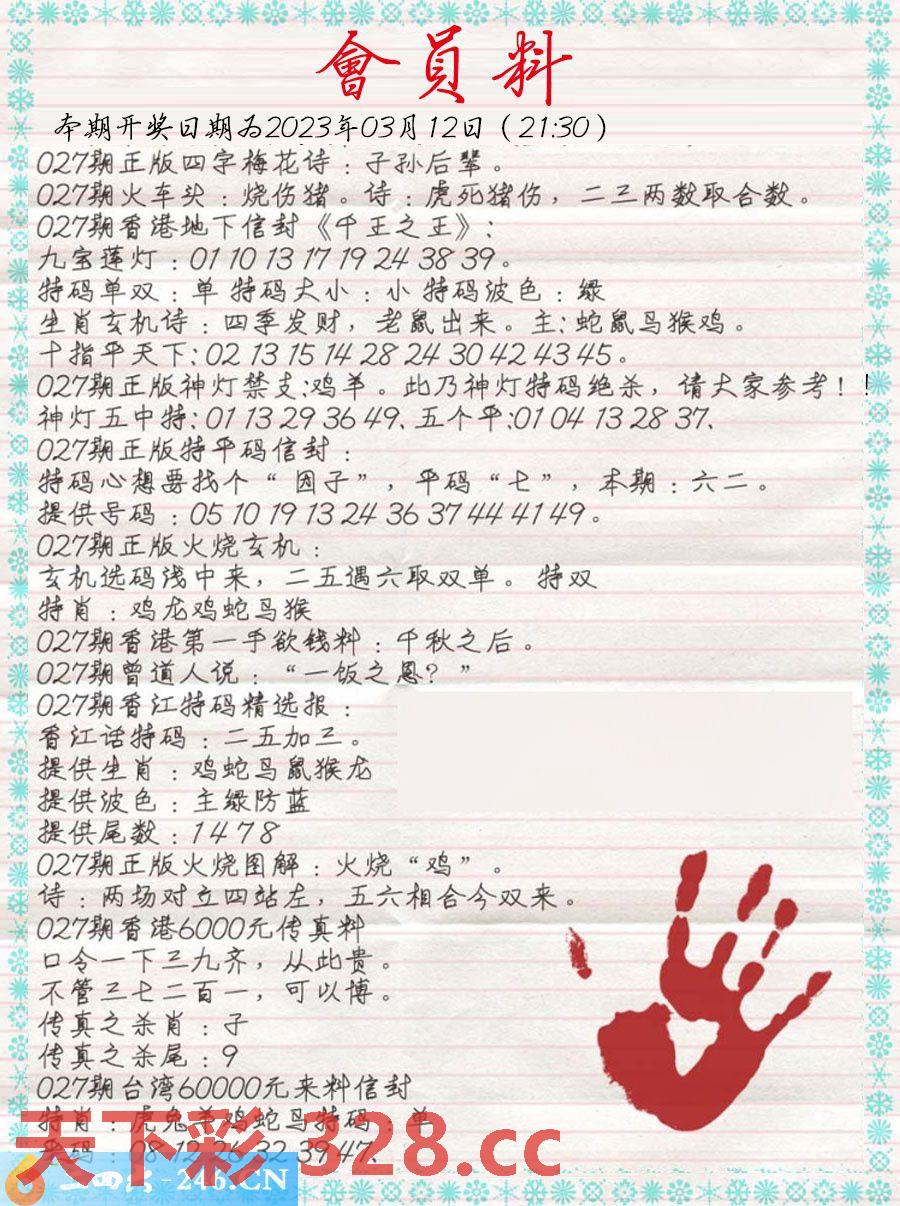 會員料
本期开奖日期为2023年03月12日（21:30）
027期正版四字梅花诗：子孙后辈。
027期火车头：烧伤猪。诗：虎死猪伤，二三两数取合数。
027期香港地下信封《千王之王》：
九宝莲灯：01 10 13 17 19 24 38 39。
特码单双：单 特码大小：小 特码波色：绿
生肖玄机诗：四季发财，老鼠出来。主：蛇鼠马猴鸡。
十指平天下：02 13 15 14 28 24 30 42 43 45。
027期正版神灯禁支：鸡羊。此乃神灯特码绝杀，请大家参考！！
神灯五中特：01 13 29 36 49、五个平：01 04 13 28 37、
027期正版特平码信封：
特码心想要找个“因子”，平码“七”，本期：六二。
提供号码：05 10 19 13 24 36 37 44 41 49。
027期正版火烧玄机：
玄机选码浅中来，二五遇六取双单。 特双
特肖：鸡龙鸡蛇马猴
027期香港第一手欲钱料：千秋之后。
027期曾道人说：“一饭之恩？”
027期香江特码精选报：
香江话特码：二五加三。
提供生肖：鸡蛇马鼠猴龙
提供波色：主绿防蓝
提供尾数：1 4 7 8
027期正版火烧图解：火烧“鸡”。
诗：两场对立四站左，五六相合今双来。
027期香港6000元传真料
口令一下三九齐，从此贵。
不管三七二百一，可以博。
传真之杀肖：子
传真之杀尾：9
027期台湾60000元来料信封
特肖：虎兔羊鸡蛇马特码：单
平码：08 12 26 32 39 47、
天下彩 328.cc
二四六-246.CN